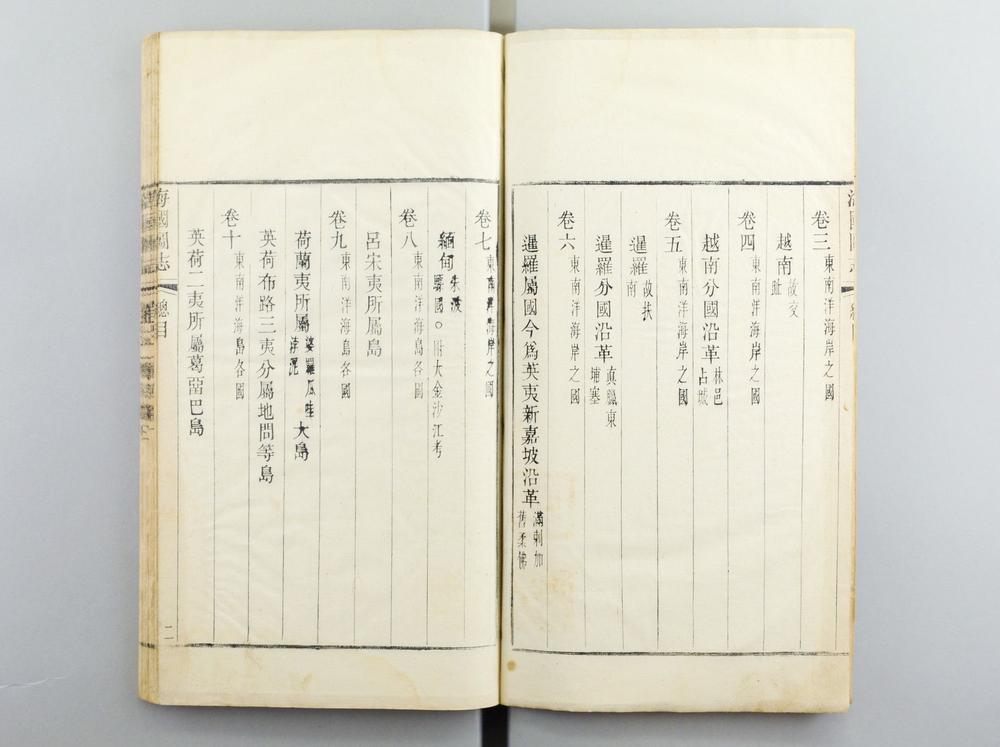 卷三 東南洋海岸之國
越南 故交趾
卷四 東南洋海岸之國
越南分國沿革 林邑占城
卷五 東南洋海岸之國
暹羅 故扶南
暹羅分國沿革 真臘東埔塞
卷六 東南洋海岸之國
暹羅屬國今爲英夷新嘉坡沿革 滿剌加舊柔佛
卷七 東南洋海岸之國
緬甸 朱波驃國○附大金沙江考
卷八 東南洋海島各國
呂宋夷所屬島
卷九 東南洋海島各國
荷蘭夷所屬 婆羅瓜哇浡泥 大島
英荷布路三夷分屬地問等島
卷十 東南洋海島各國
英荷二夷所屬葛留巴島
海國圖志
總目
二